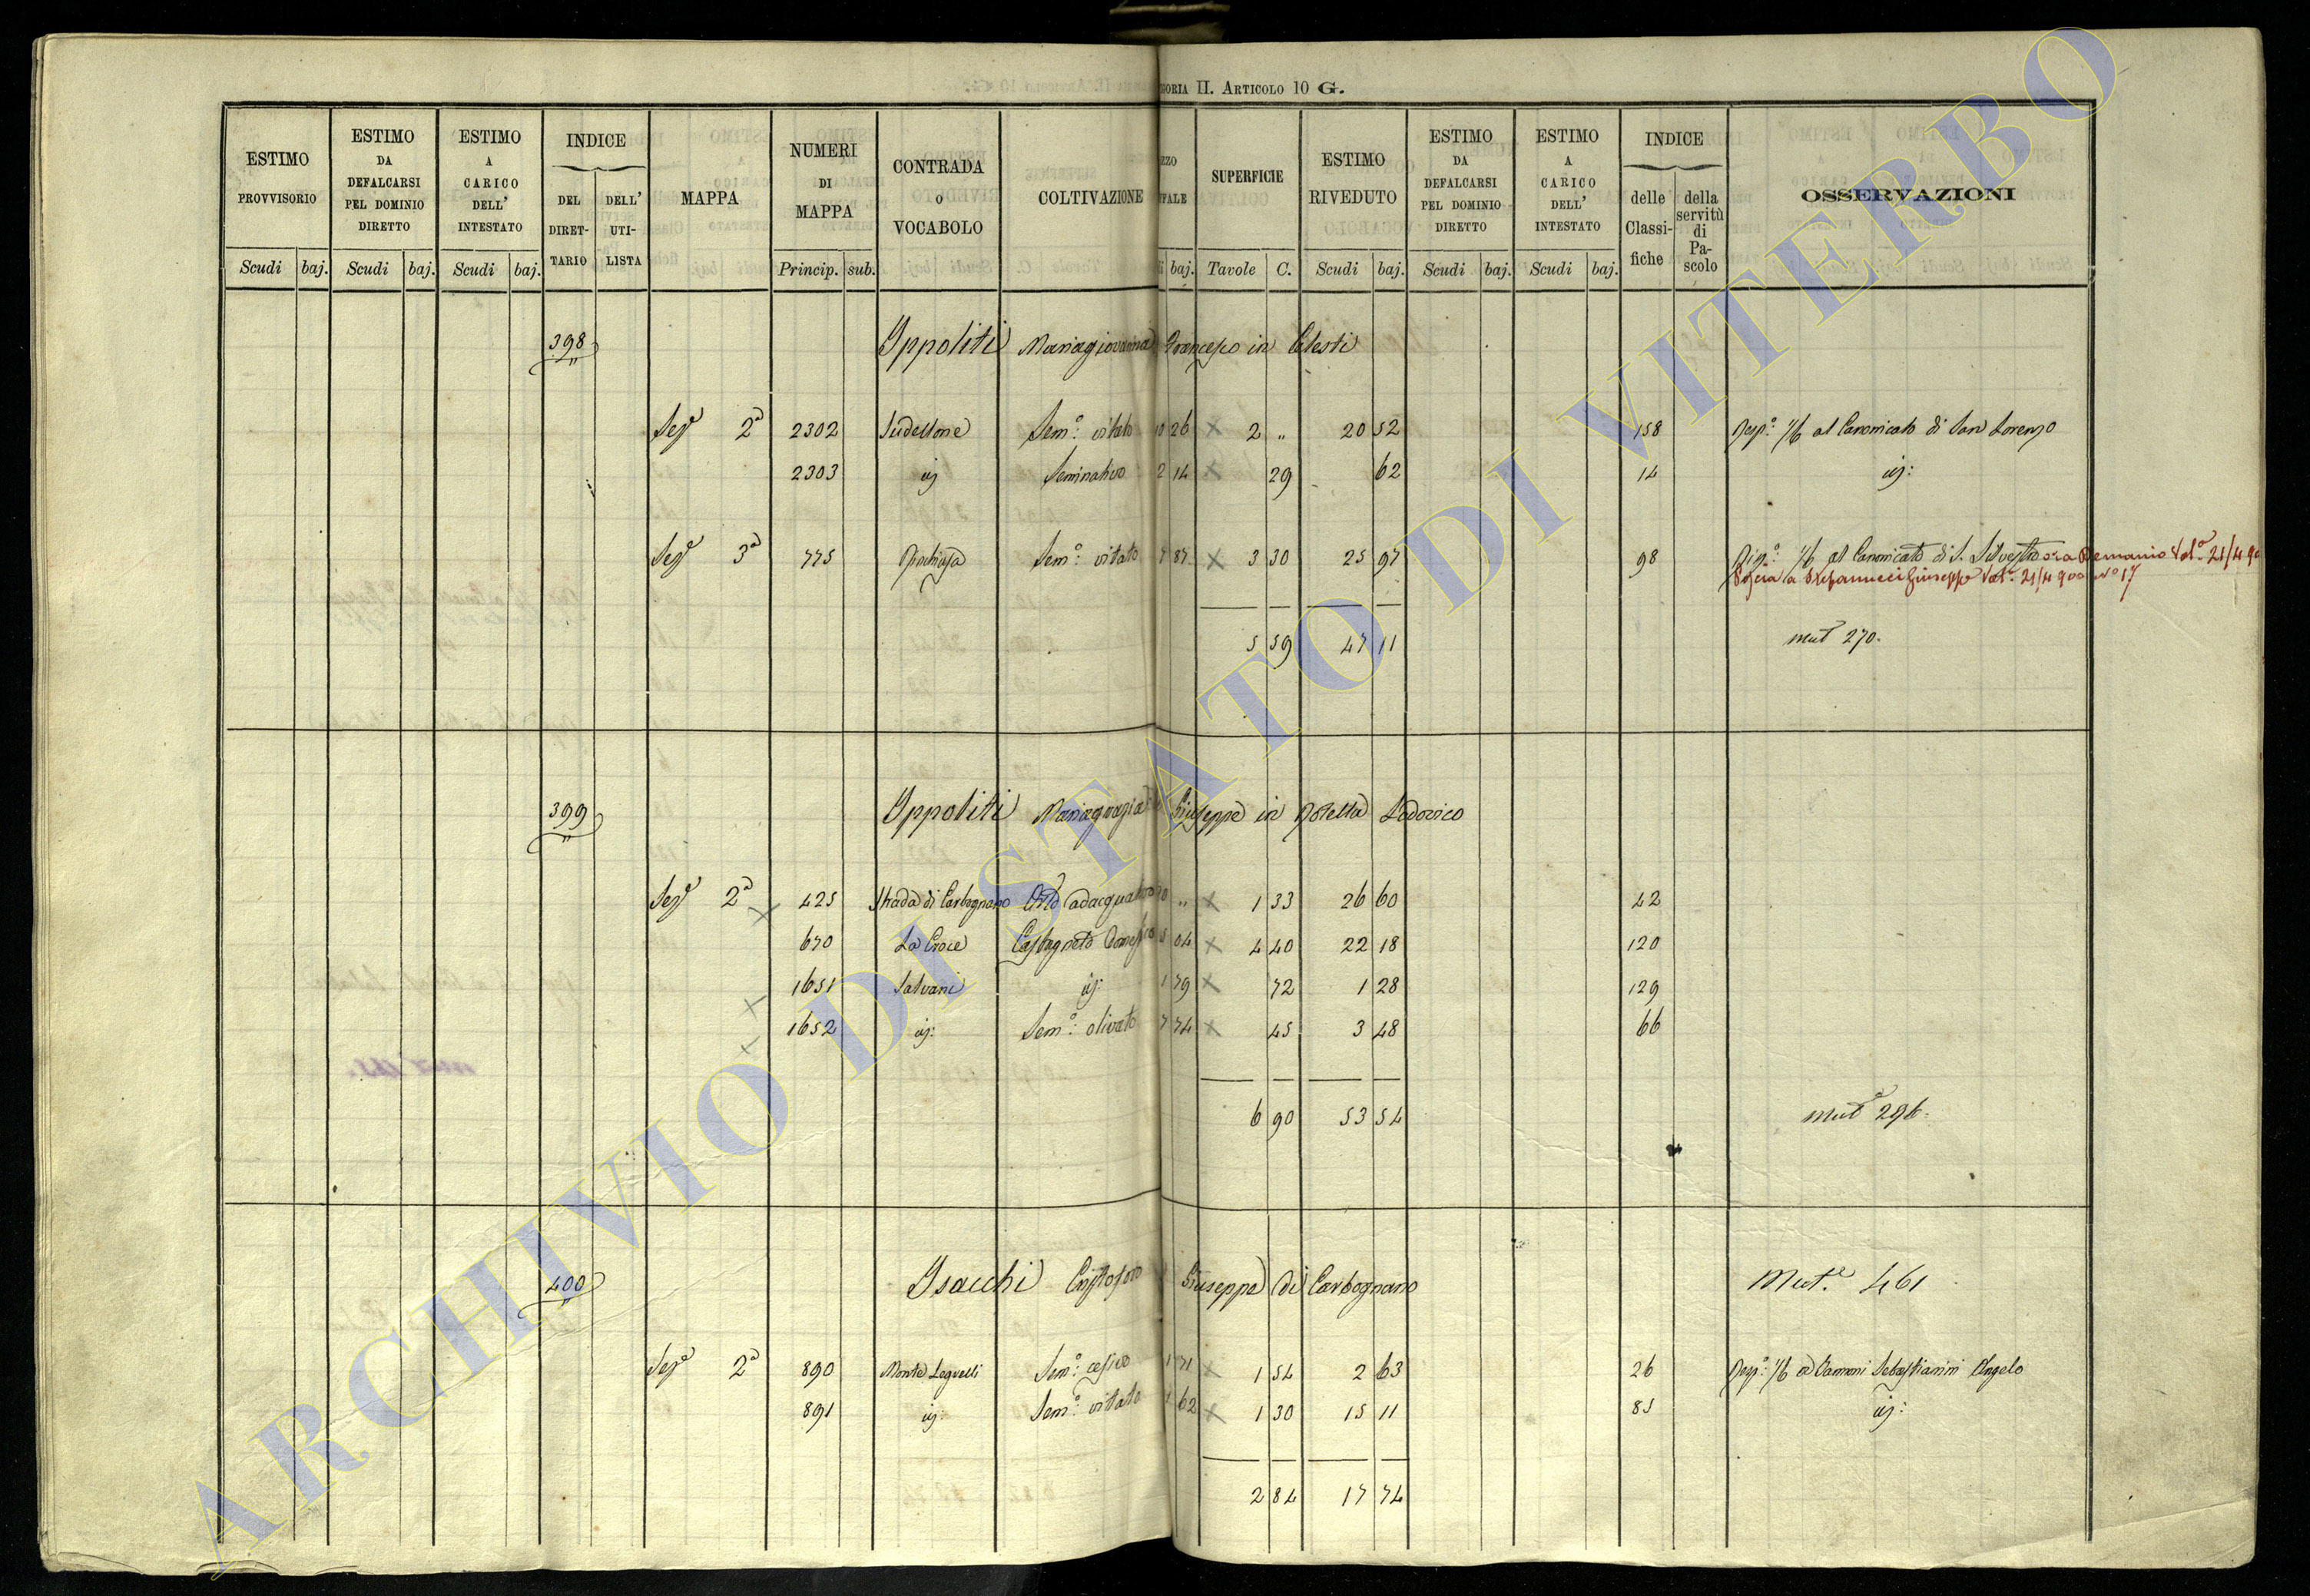 ORIA II. ARTICOLO 10 G.
ESTIMO PROVVISORIO
ESTIMO DA DEFALCARSI PEL DOMINIO DIRETTO
ESTIMO A CARICO DELL' INTESTATO
INDICE
DEL DIRET-TARIO
DELL' UTI-LISTA
MAPPA
NUMERI DI MAPPA
CONTRADA O VOCABOLO
COLTIVAZIONE
ZZO
PALE
SUPERFICIE
ESTIMO RIVEDUTO
ESTIMO DA DEFALCARSI PEL DOMINIO DIRETTO
ESTIMO A CARICO DELL' INTESTATO
INDICE
delle Classi-fiche
della servitù di Pa-scolo
OSSERVAZIONI
Scudi baj. Scudi baj. Scudi baj. Princip. sub. baj. Tavole C. Scudi baj. Scudi baj. Scudi baj.
398 Ippoliti Mariagiovanna Francesco in Celesti
Sezᵉ 2ᵃ 2302 Sem°: vitato 10 26 × 2 „ 20 52 158 Risp°: 1/6 al Canonicato di San Lorenzo
2303 id Seminativo 2 14 × 29 62 14 id:
Sezᵉ 3ᵃ 775 Sem°: vitato 7 87 × 3 30 25 97 98 Risp°: 1/6 al Canonicato di S. Silvestro ora Demanio Volᵃ 21/4 90
a Stefanucci Giuseppe Volᵃ 21/4 900 N° 17
5 59 47 11 mutᵉ 270.
399 Ippoliti Mariagrazia Giuseppe in Lodovico
Sezᵉ 2ᵃ × 425 Strada di Carbognano Orto adacquativo 20 „ × 1 33 26 60 42
670 La Croce Castagneto 5 04 × 4 40 22 18 120
× 1651 Salvani id: 1 79 × 72 1 28 129
× 1652 id: Sem°: olivato 7 74 × 45 3 48 66
6 90 53 54 mutᵉ 296.
400 Isacchi Cristoforo Giuseppe di Carbognano Mutᵉ. 461
Sezᵉ 2ᵃ 890 Monte Sem°: cesivo 1 71 × 1 54 2 63 26 Risp°: 1/6 a Sebastianini Angelo
891 id: Sem°: vitato 1 62 × 1 30 15 11 85 id:
2 84 17 74
ARCHIVIO DI STATO DI VITERBO